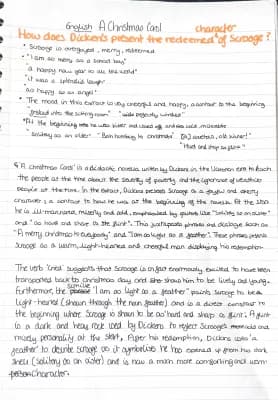 English A Christmas Carol
character
How does Dickens present the redeemed of Scrooge?
• Scrooge is overjoyed, merry, redeemed
• "I am as merry as a school boy"
"A happy new year to all the world"
"it was a splendid laugh"
"as happy as an angel"
• The mood in this extract is very cheerful and happy, a contrast to the beginning
• At the beginning he was
"solitary as an oyster"
"Hard and sharp as flint"
'A Christmas Carol' is a didactic novella written by Dickens in the Victorian era to teach
the people at the time about the severity of poverty and the ignorance of wealthier
people at the time. In the extract, Dickens presents Scrooge as a joyful and cheery
character; a contrast to how he was at the beginning of the novella. At the start
he is ill-mannered, miserly and odd, emphasised by quotes like "Solitary as an oyster"
and "as hard and sharp as flint". This juxtaposes phrases and dialogue such as
"A merry christmas to everybody" and "I am as light as a feather". These phrases present
Scrooge as a warm, light-hearted and cheerful man displaying his redemption.
The verb 'cried' suggests that Scrooge is in fact enormously excited to have been
transported back to christmas day and show him to be lively and young.
Furthermore, the simile "I am as light as a feather" paints Scrooge to be
light-hearted (shown through the noun feather) and is a direct contrast to
the beginning where Scrooge is shown to be as 'hard and sharp as flint'. Flint
is a dark and heavy rock used by Dickens to reflect Scrooge's and
misery personality at the start. After his redemption, Dickens uses 'a
feather' to describe Scrooge as it symbolises he has opened up from his dark
shell (solitary as an oyster) and is now a much more comforting and warm
person/character.